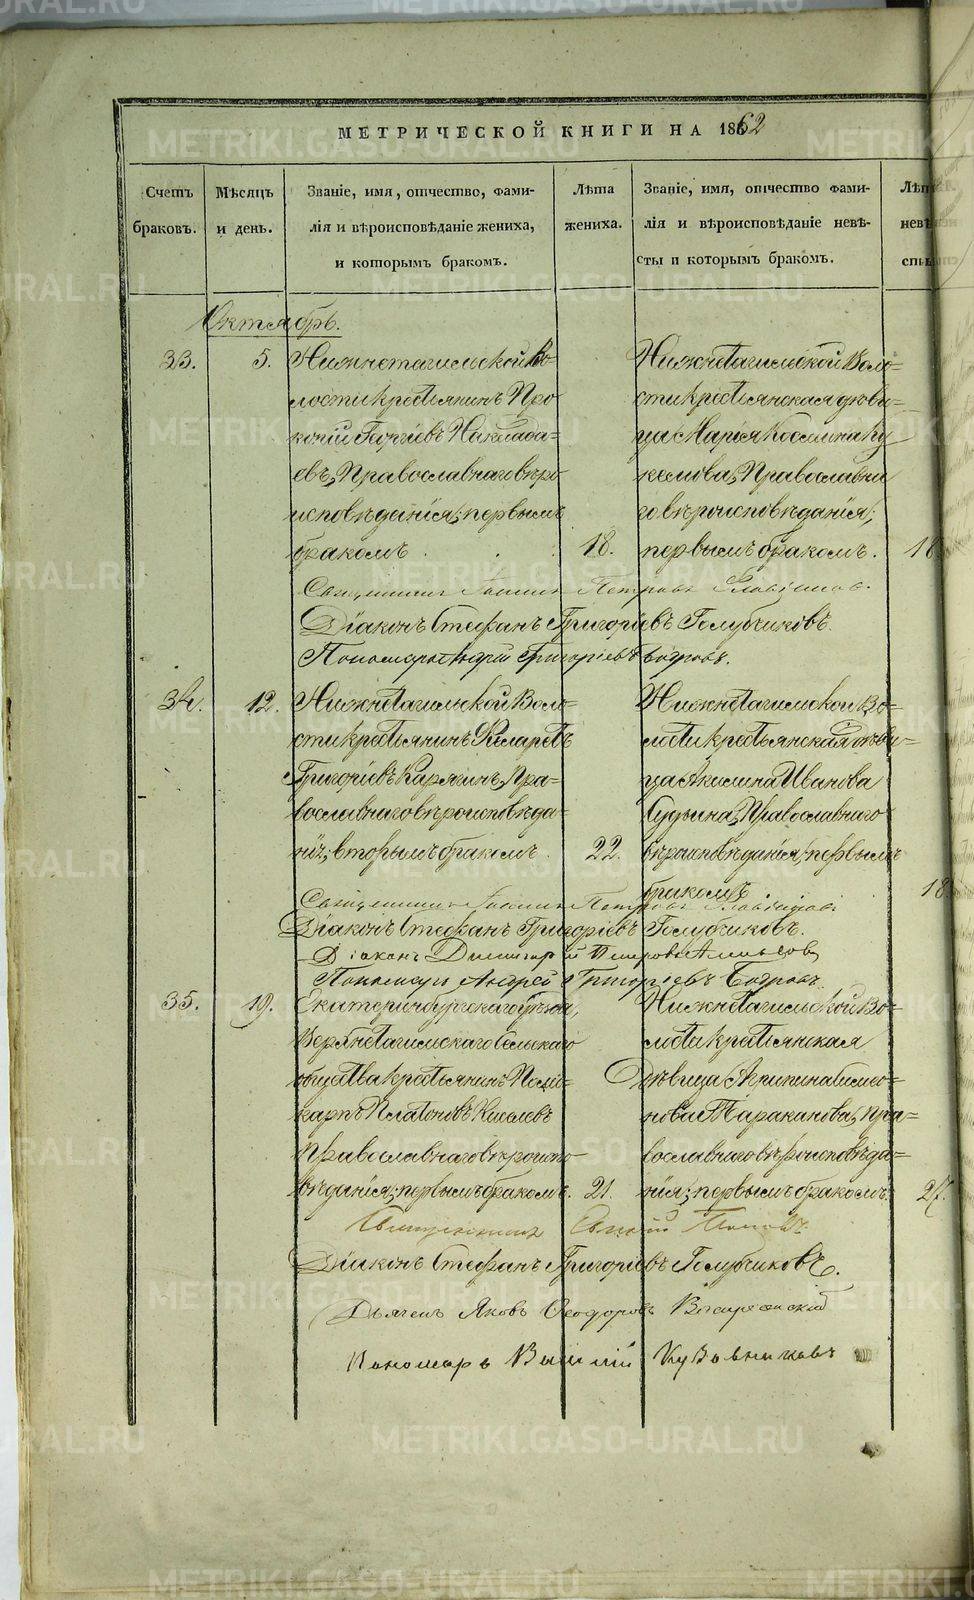 МЕТРИЧЕСКОЙ КНИГИ НА 1862
Счетъ браковъ.
Мѣсяцъ и день.
Званіе, имя, отчество, фами-
лія и вѣроисповѣданіе жениха,
и которымъ бракомъ.
Лѣта жениха.
Званіе, имя, отчество фами-
лія и вѣроисповѣданіе невѣ-
сты и которымъ бракомъ.
Октябрь.
33.
5.
Нижнетагильской Во
лости крестьянинъ Про
копій Георгіевъ Накладо=
евъ, Православнаго вѣро
исповѣданія; первымъ
бракомъ
18.
Нижнетагильской Воло=
сти крестьянская дѣви=
ца Марія Космина Ку
Православна
го вѣроисповѣданія;
первымъ бракомъ.
18
Священникъ Іоаннъ Петровъ
Діаконъ Стефанъ Григоріевъ Голубчиковъ.
Пономарь Андрей Григоріевъ Бобровъ.
34.
12.
Нижнетагильской Воло=
сти крестьянинъ Филаретъ
Григоріевъ Карягинъ, Пра=
вославнаго вѣроисповѣда=
нія; вторымъ бракомъ
22.
Нижнетагильской Во=
лости крестьянская дѣви=
ца Акилина Иванова
Судьина, Православнаго
вѣроисповѣданія; первымъ
бракомъ
18.
Священникъ Іоаннъ Петровъ
Діаконъ Стефанъ Григоріевъ Голубчиковъ.
Діаконъ Димитрій Петровъ
Пономарь Андрей Григоріевъ Бобровъ
35.
19.
Екатеринбургскаго уѣзда,
Верхнетагильскаго сельскаго
общества крестьянинъ Поли=
карпъ Платоновъ Киселевъ
Православнаго вѣроиспо=
вѣданія; первымъ бракомъ.
21.
Нижнетагильской Во=
лости крестьянская
Дѣвица Агрипина Симео=
нова Тараканова, Пра=
вославнаго вѣроисповѣда=
нія; первымъ бракомъ.
27.
Священникъ Поповъ
Діаконъ Стефанъ Григоріевъ Голубчиковъ.
Дьячекъ Яковъ Ѳеодоровъ Воскресенскій
Пономарь Василій Кузовниковъ
METRIKI.GASO-URAL.RU